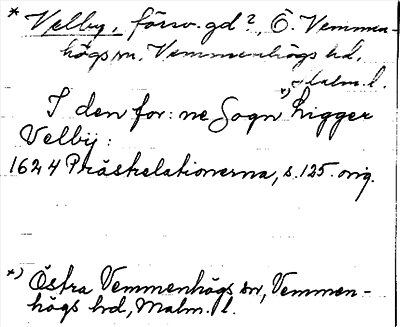 * Velby, försv. gd?, Ö. Vemmen-
högs sn, Vemmenhögs hd,
Malm. l.
I den for: ne Sogn *) ligger
Velbÿ:
1624 Prästrelationerna, s. 125. orig.
*) Östra Vemmenhögs sn, Vemmen-
högs hd, Malm. l.